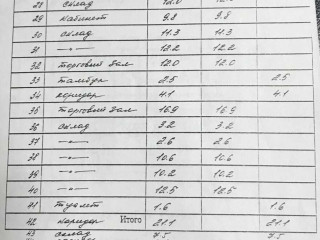 28 склад 12.0 12.0
29 кабинет 9.8 9.8
30 склад 11.3 11.3
31 —"— 12.2 12.2
32 торговый зал 12.0 12.0
33 тамбур 2.5 2.5
34 коридор 4.1 4.1
35 торговый зал 16.9 16.9
36 склад 3.2 3.2
37 —"— 2.6 2.6
38 —"— 10.6 10.6
39 —"— 10.2 10.2
40 —"— 12.5 12.5
41 туалет 1.6 1.6
42 коридор Итого 21.1 21.1
43 склад 7.5 7.5